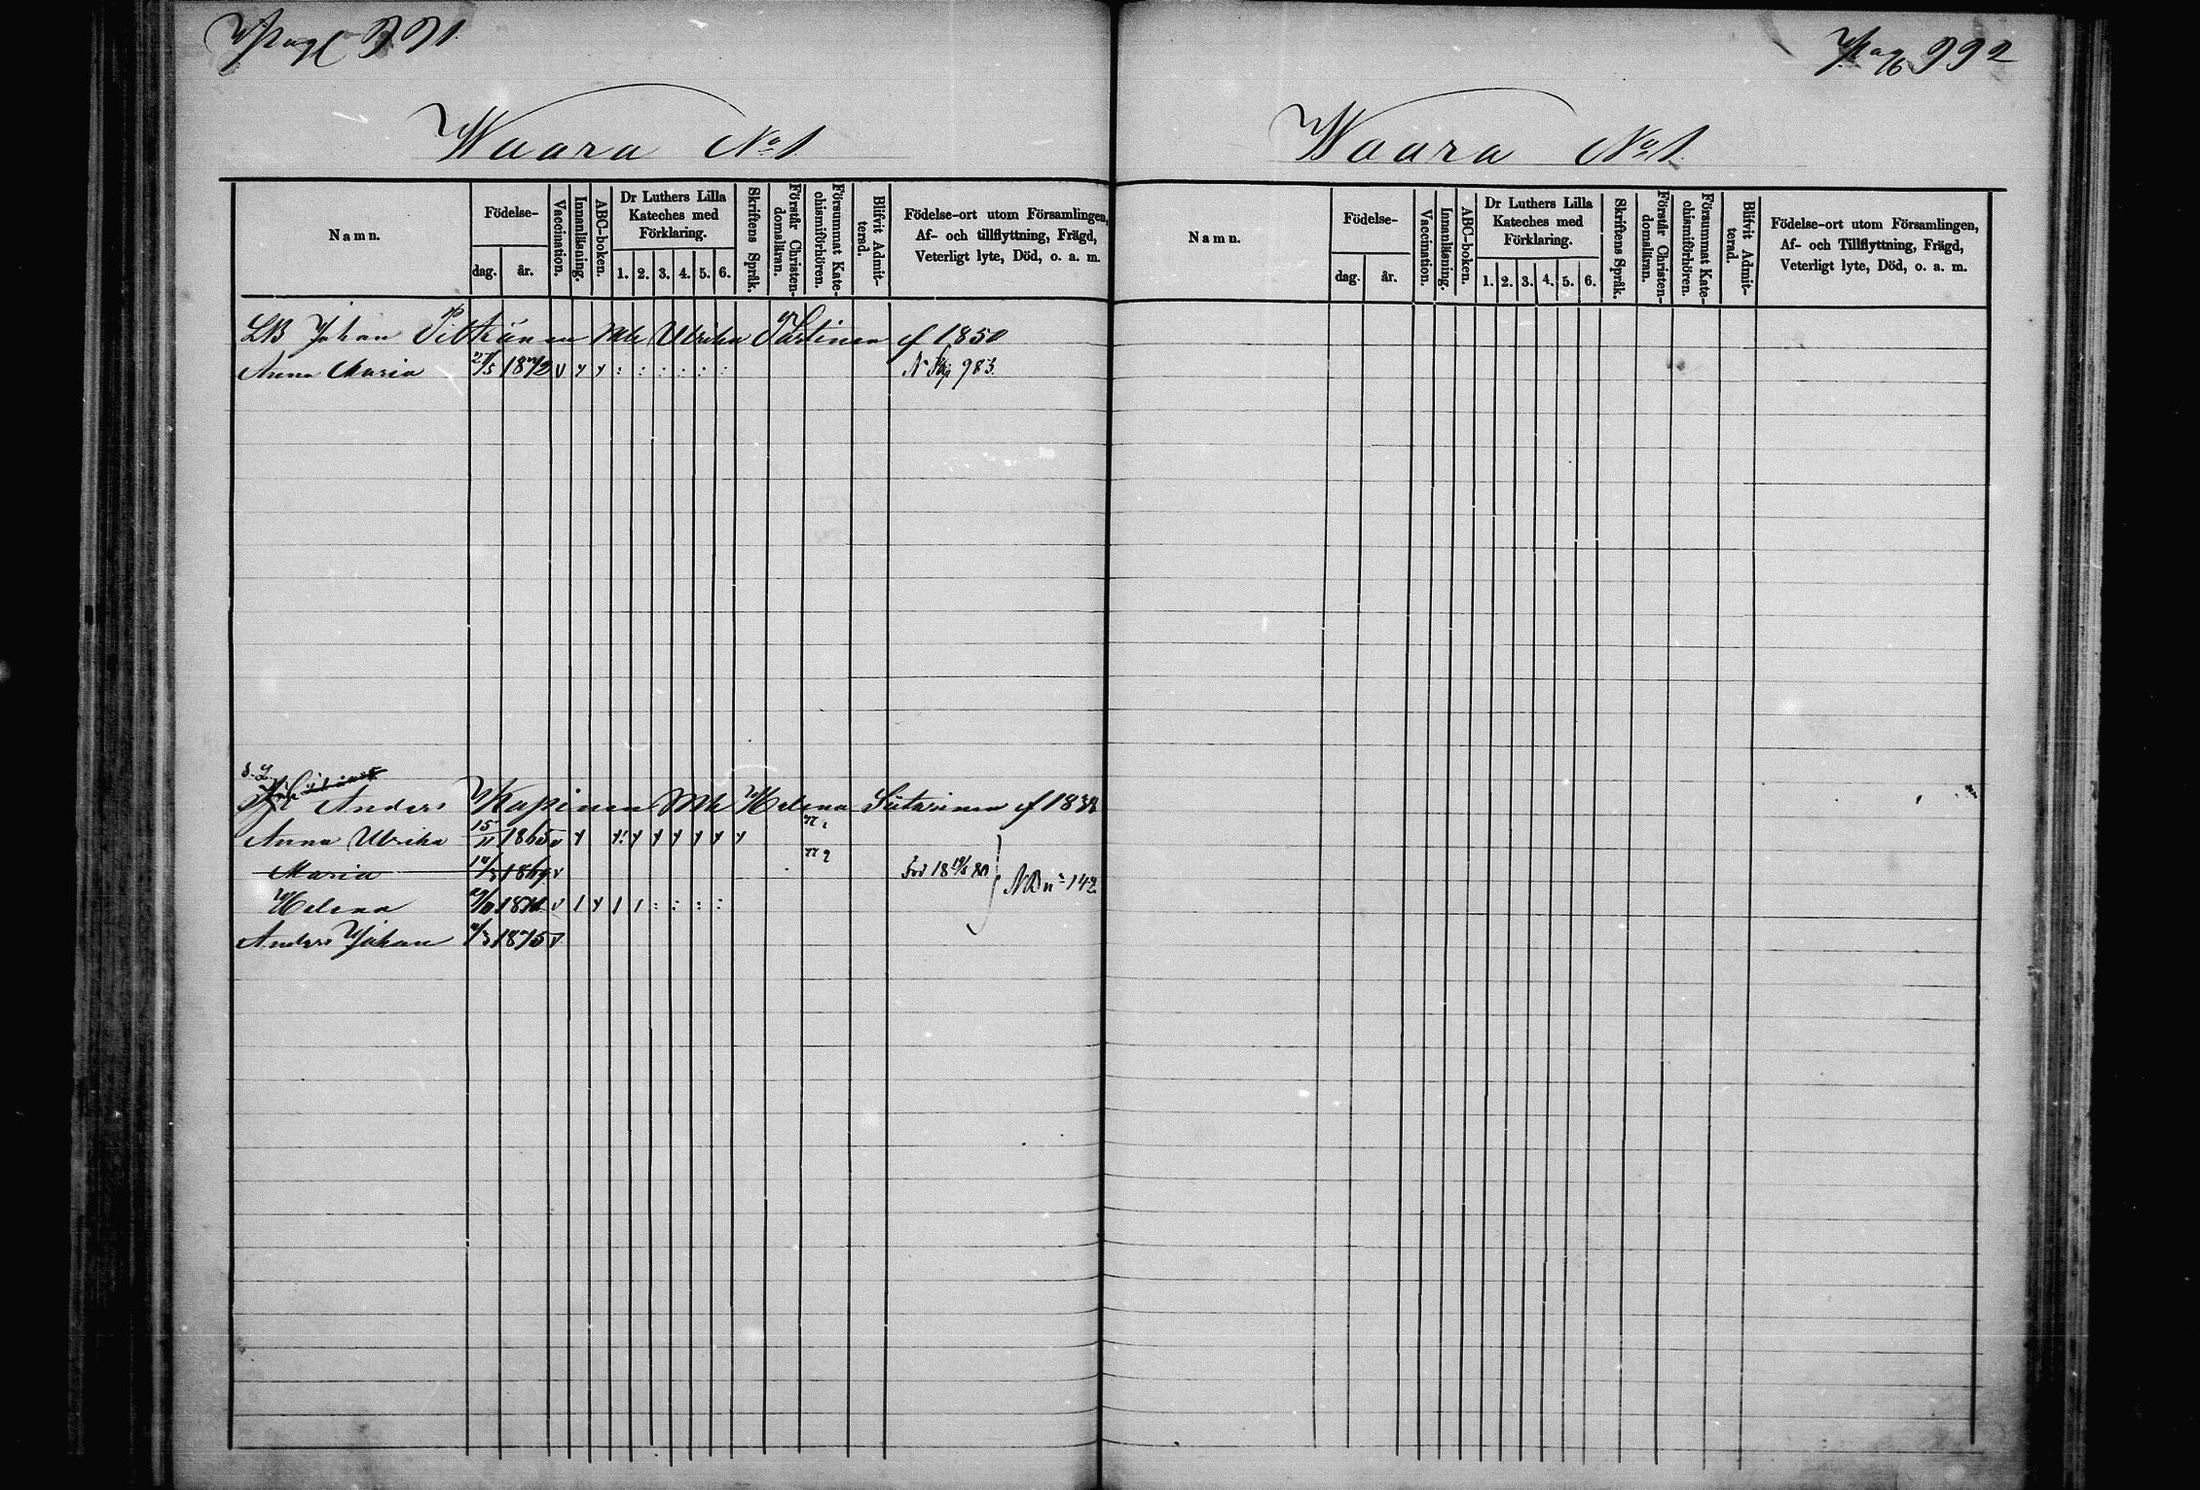 Pag 991
Waara No 1.
Namn.
Födelse-
dag.
år.
Vaccination.
Innanläsning.
ABC-boken.
Dr Luthers Lilla
Kateches med
Förklaring.
1. 2. 3. 4. 5. 6.
Skriftens Språk.
Förstår Christen-
domsläran.
Försummat Kate-
chismiförhören.
Blifvit Admit-
terad.
Födelse-ort utom Församlingen,
Af- och tillflyttning, Frägd,
Veterligt lyte, Död, o. a. m.
LB Johan Mh Ulrika f 1850
Anna Maria 1872 v 983
Anders Mh Helena f
Anna Ulrika 15/11 1865 v
Maria v
Helena v
Anders Johan 1875 v
142
Pag 992
Waara No 1.
Namn.
Födelse-
dag.
år.
Vaccination.
Innanläsning.
ABC-boken.
Dr Luthers Lilla
Kateches med
Förklaring.
1. 2. 3. 4. 5. 6.
Skriftens Språk.
Förstår Christen-
domsläran.
Försummat Kate-
chismiförhören.
Blifvit Admit-
terad.
Födelse-ort utom Församlingen,
Af- och Tillflyttning, Frägd,
Veterligt lyte, Död, o. a. m.